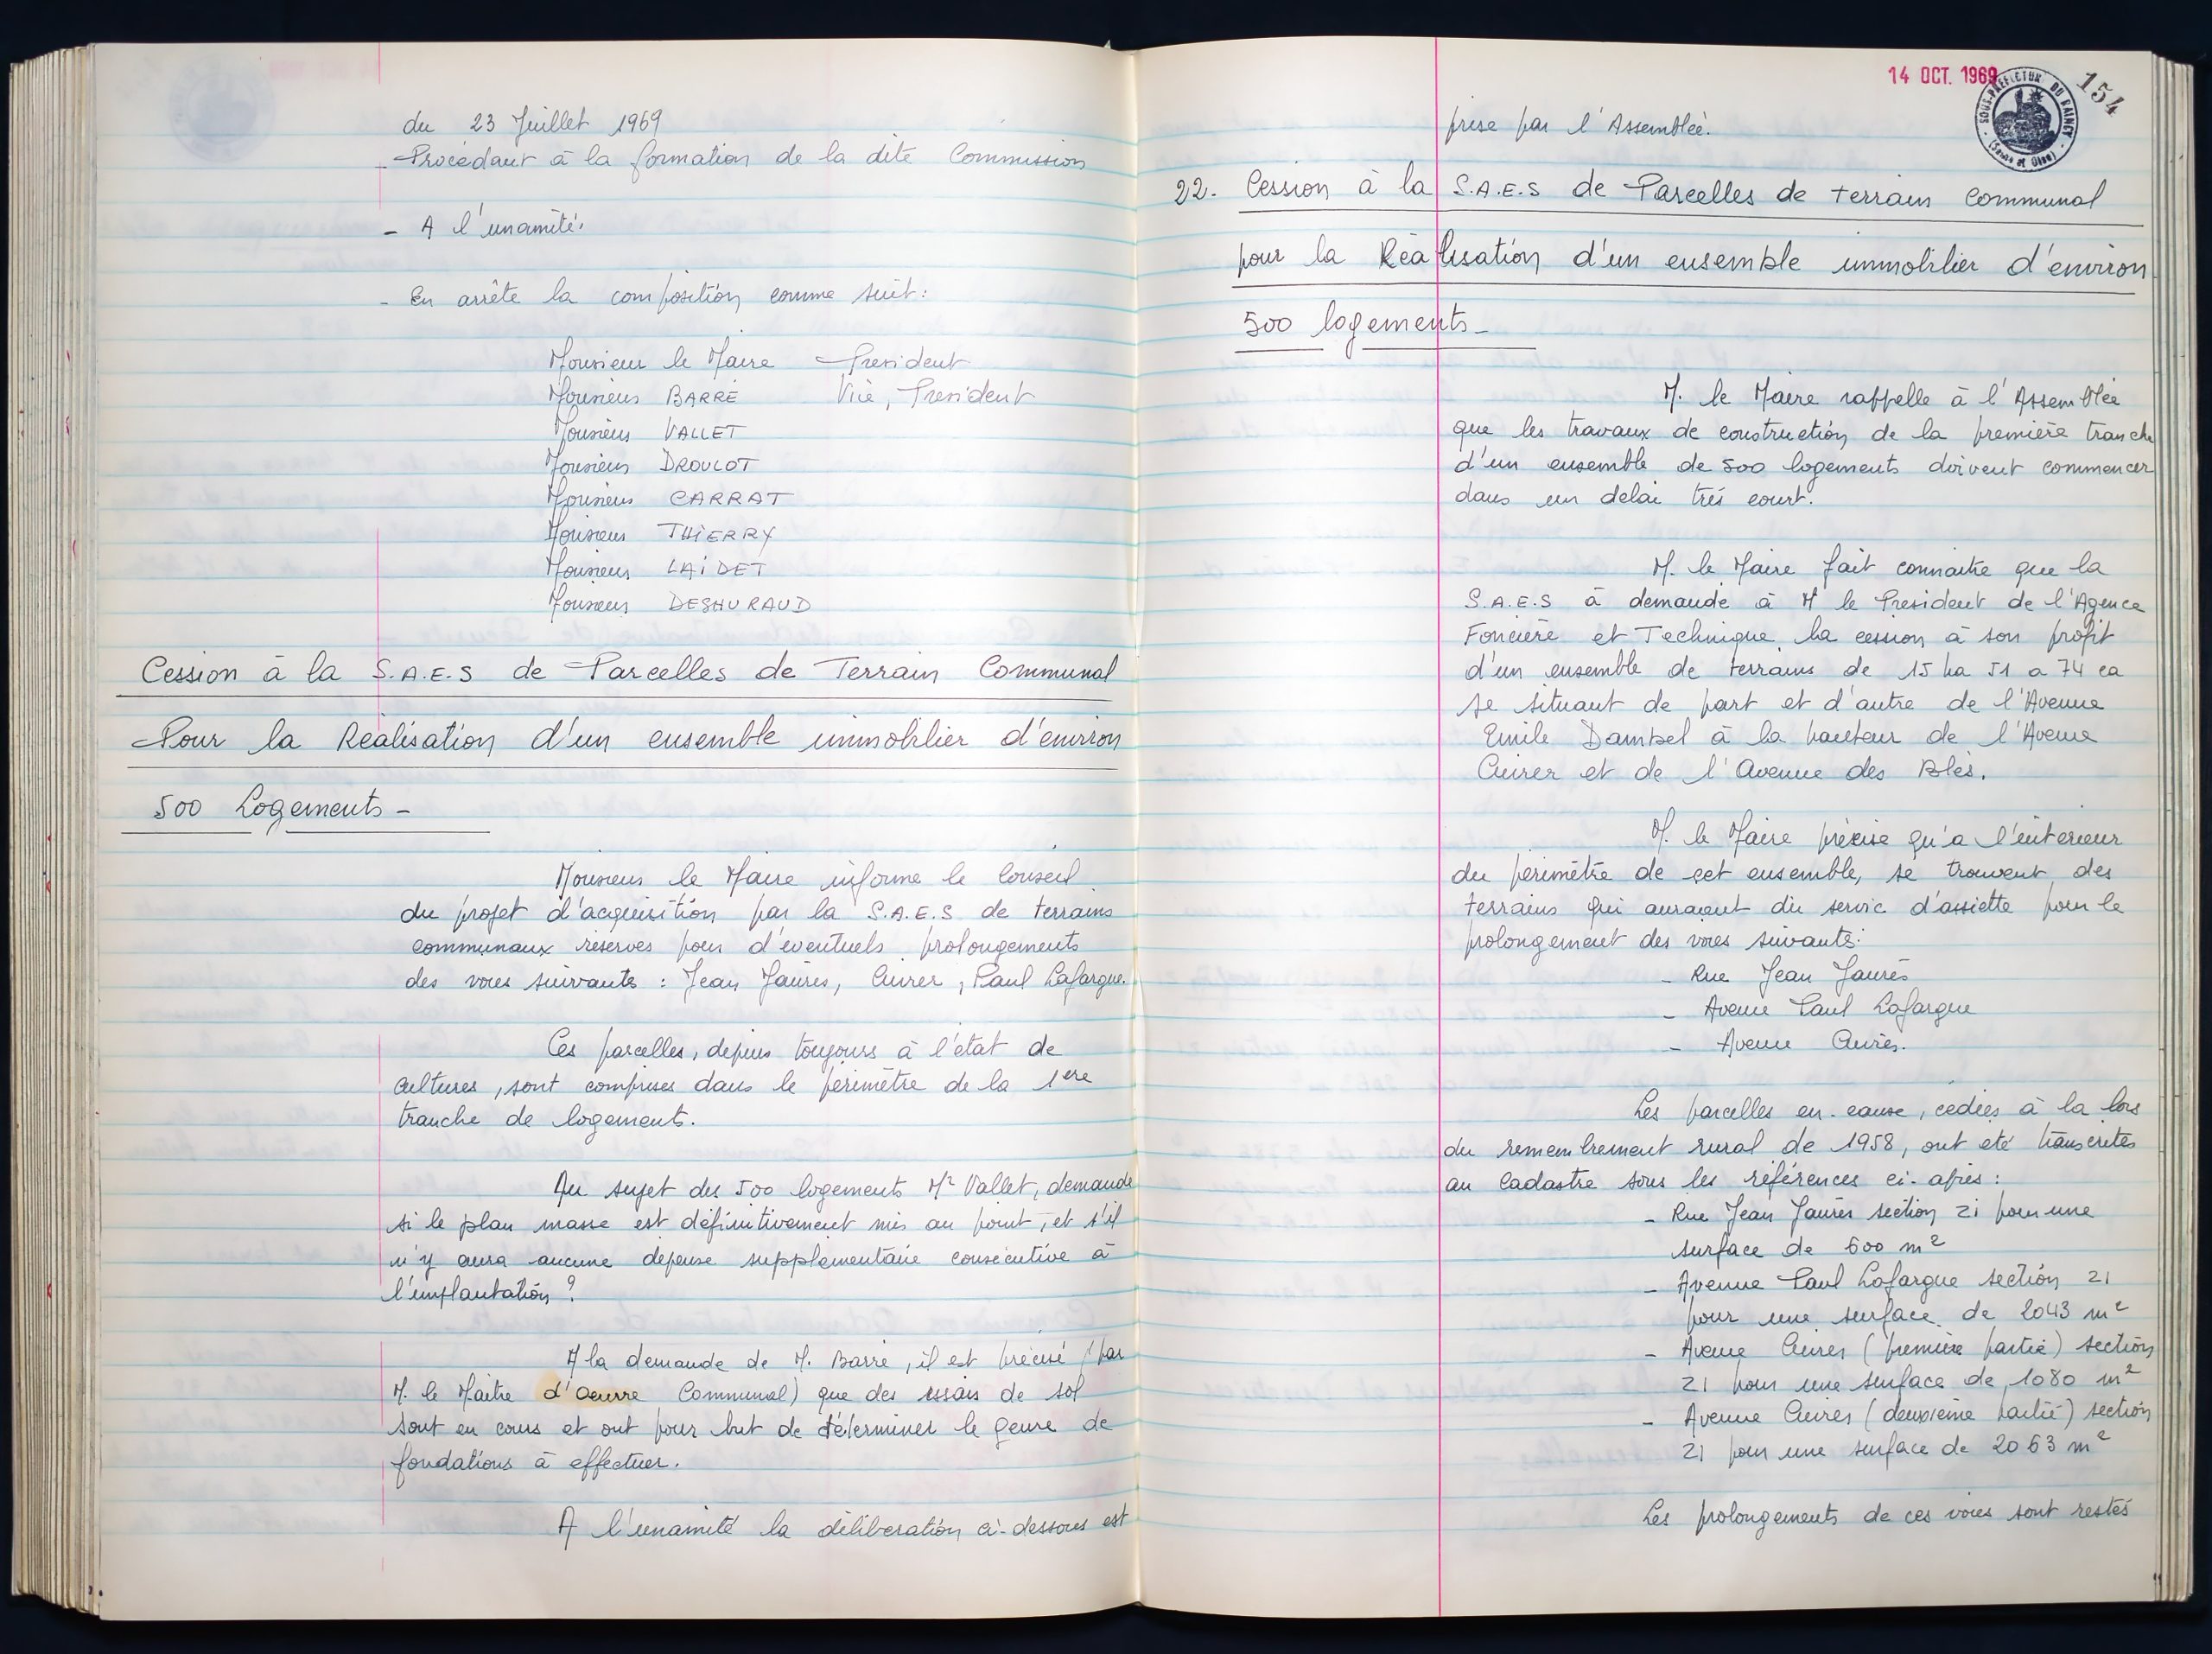 du 23 Juillet 1969
- Procédant à la formation de la dite Commission
- A l'unamité.
- En arrête la composition comme suit :
Monsieur le Maire Président
Monsieur BARRÉ Vice, President
Monsieur VALLET
Monsieur DROULOT
Monsieur CARRAT
Monsieur THIERRY
Monsieur LAIDET
Monsieur DESHURAUD
Cession à la S.A.E.S de Parcelles de Terrain Communal
Pour la Réalisation d'un ensemble immobilier d'environ
500 Logements -
Monsieur le Maire informe le Conseil
du projet d'acquisition par la S.A.E.S de terrains
communaux réserves pour d'éventuels prolongements
des voies suivantes : Jean Jaurès, Curer, Paul Lafargue.
Ces parcelles, depuis toujours à l'état de
cultures, sont comprises dans le périmètre de la 1ere
tranche de logements.
Au sujet des 500 logements Mr Vallet, demande
si le plan masse est définitivement mis au point, et s'il
n'y aura aucune dépense supplémentaire consécutive à
l'implantation ?
A la demande de M. Barré, il est précisé (par
M. le Maître d'Oeuvre Communal) que des essais de sol
sont en cours et ont pour but de déterminer le genre de
fondations à effectuer.
A l'unamité la délibération ci-dessous est
14 OCT. 1969
SOUS-PREFECTURE DU RAINCY
(Seine et Oise)
154
prise par l'Assemblée.
22. Cession à la S.A.E.S de Parcelles de terrain Communal
pour la Réalisation d'un ensemble immobilier d'environ
500 logements -
M. le Maire rappelle à l'Assemblée
que les travaux de construction de la première tranche
d'un ensemble de 500 logements doivent commencer
dans un délai très court.
M. le Maire fait connaitre que la
S.A.E.S à demandé à Mr le President de l'Agence
Foncière et Technique, la cession à son profit
d'un ensemble de terrains de 15 ha 51 a 74 ca
se situant de part et d'autre de l'Avenue
Emile Dambel à la hauteur de l'Avenue
Curer et de l'Avenue des Blés.
M. le Maire précise qu'a l'interieur
du périmètre de cet ensemble, se trouvent des
terrains qui auraient dû servir d'assiette pour le
prolongement des voies suivantes :
- Rue Jean Jaurès
- Avenue Paul Lafargue
- Avenue Curès.
Les parcelles en-cause, cédées à la lors
du remembrement rural de 1958, ont été transcrites
au Cadastre sous les références ci-après :
- Rue Jean Jaurès section 21 pour une
surface de 600 m²
- Avenue Paul Lafargue section 21
pour une surface de 2043 m²
- Avenue Curer (première partie) section
21 pour une surface de 1080 m²
- Avenue Curer (deuxième partie) section
21 pour une surface de 2063 m²
Les prolongements de ces voies sont restés